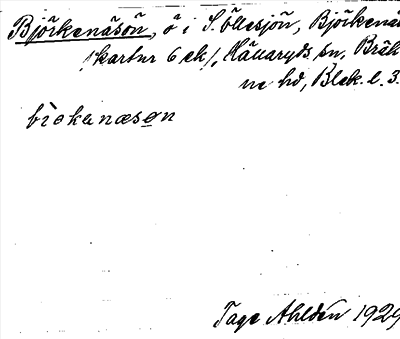 Björkenäsön, ö i S. Öllesjön, Björkenäs
/kartur 6 ek/, Hällaryds sn, Bräk
ne hd, Blek. l. 3.
biokanæsøn
Tage Ahldén 1929